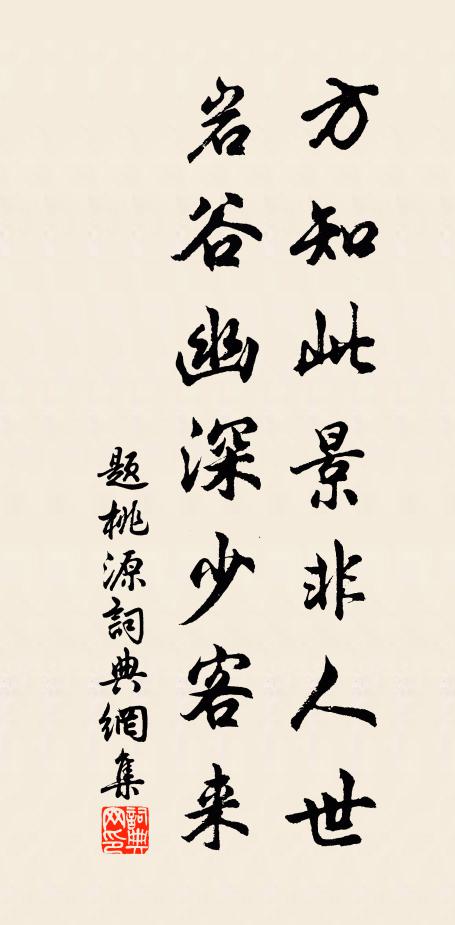 方知此景非人世
岩谷幽深少客来
题桃源詞典網集
詞典网印